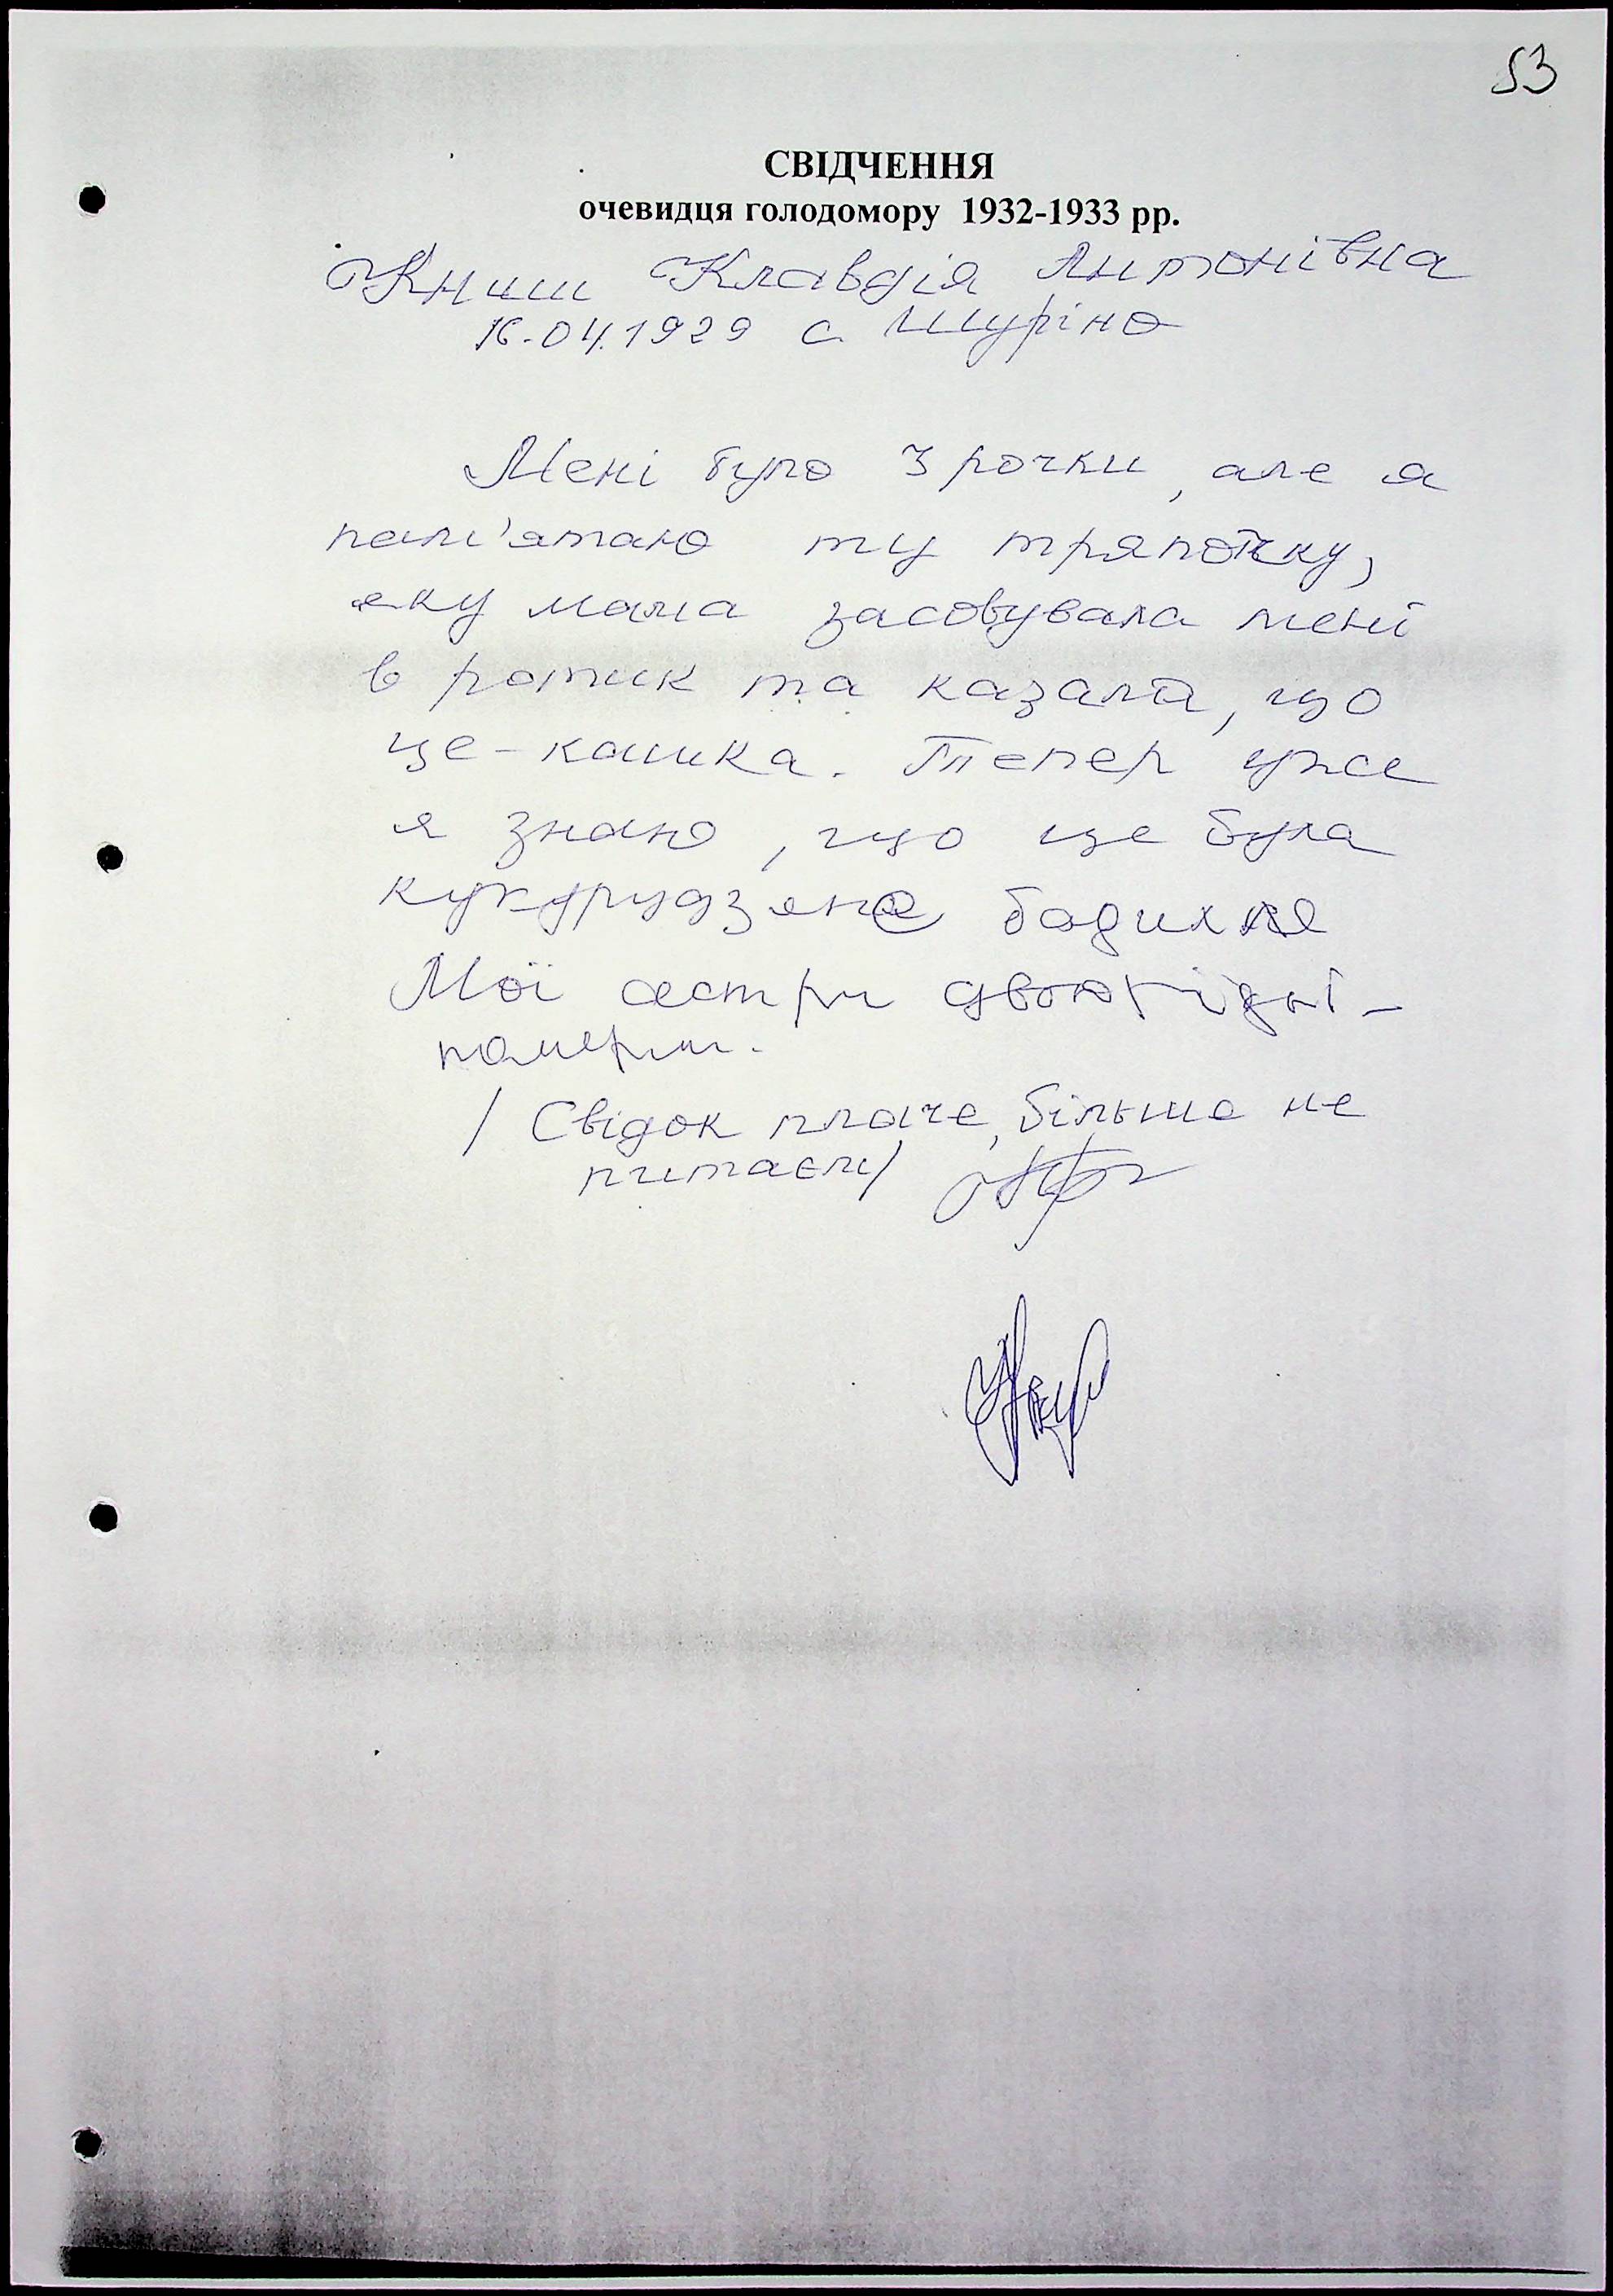 53
СВІДЧЕННЯ
очевидця голодомору 1932-1933 рр.
Книш Клавдія Антонівна
16.04.1929 с. Шуріно
Мені було 3 рочки, але я
пам'ятаю ту тряпочку,
яку мама засовувала мені
в ротик та казала, що
це - кашка. Тепер уже
я знаю, що це була
кукурудзяна бадилля
Мої сестри двоюрідні -
померли.
/ Свідок плаче, більше не
питаєм/